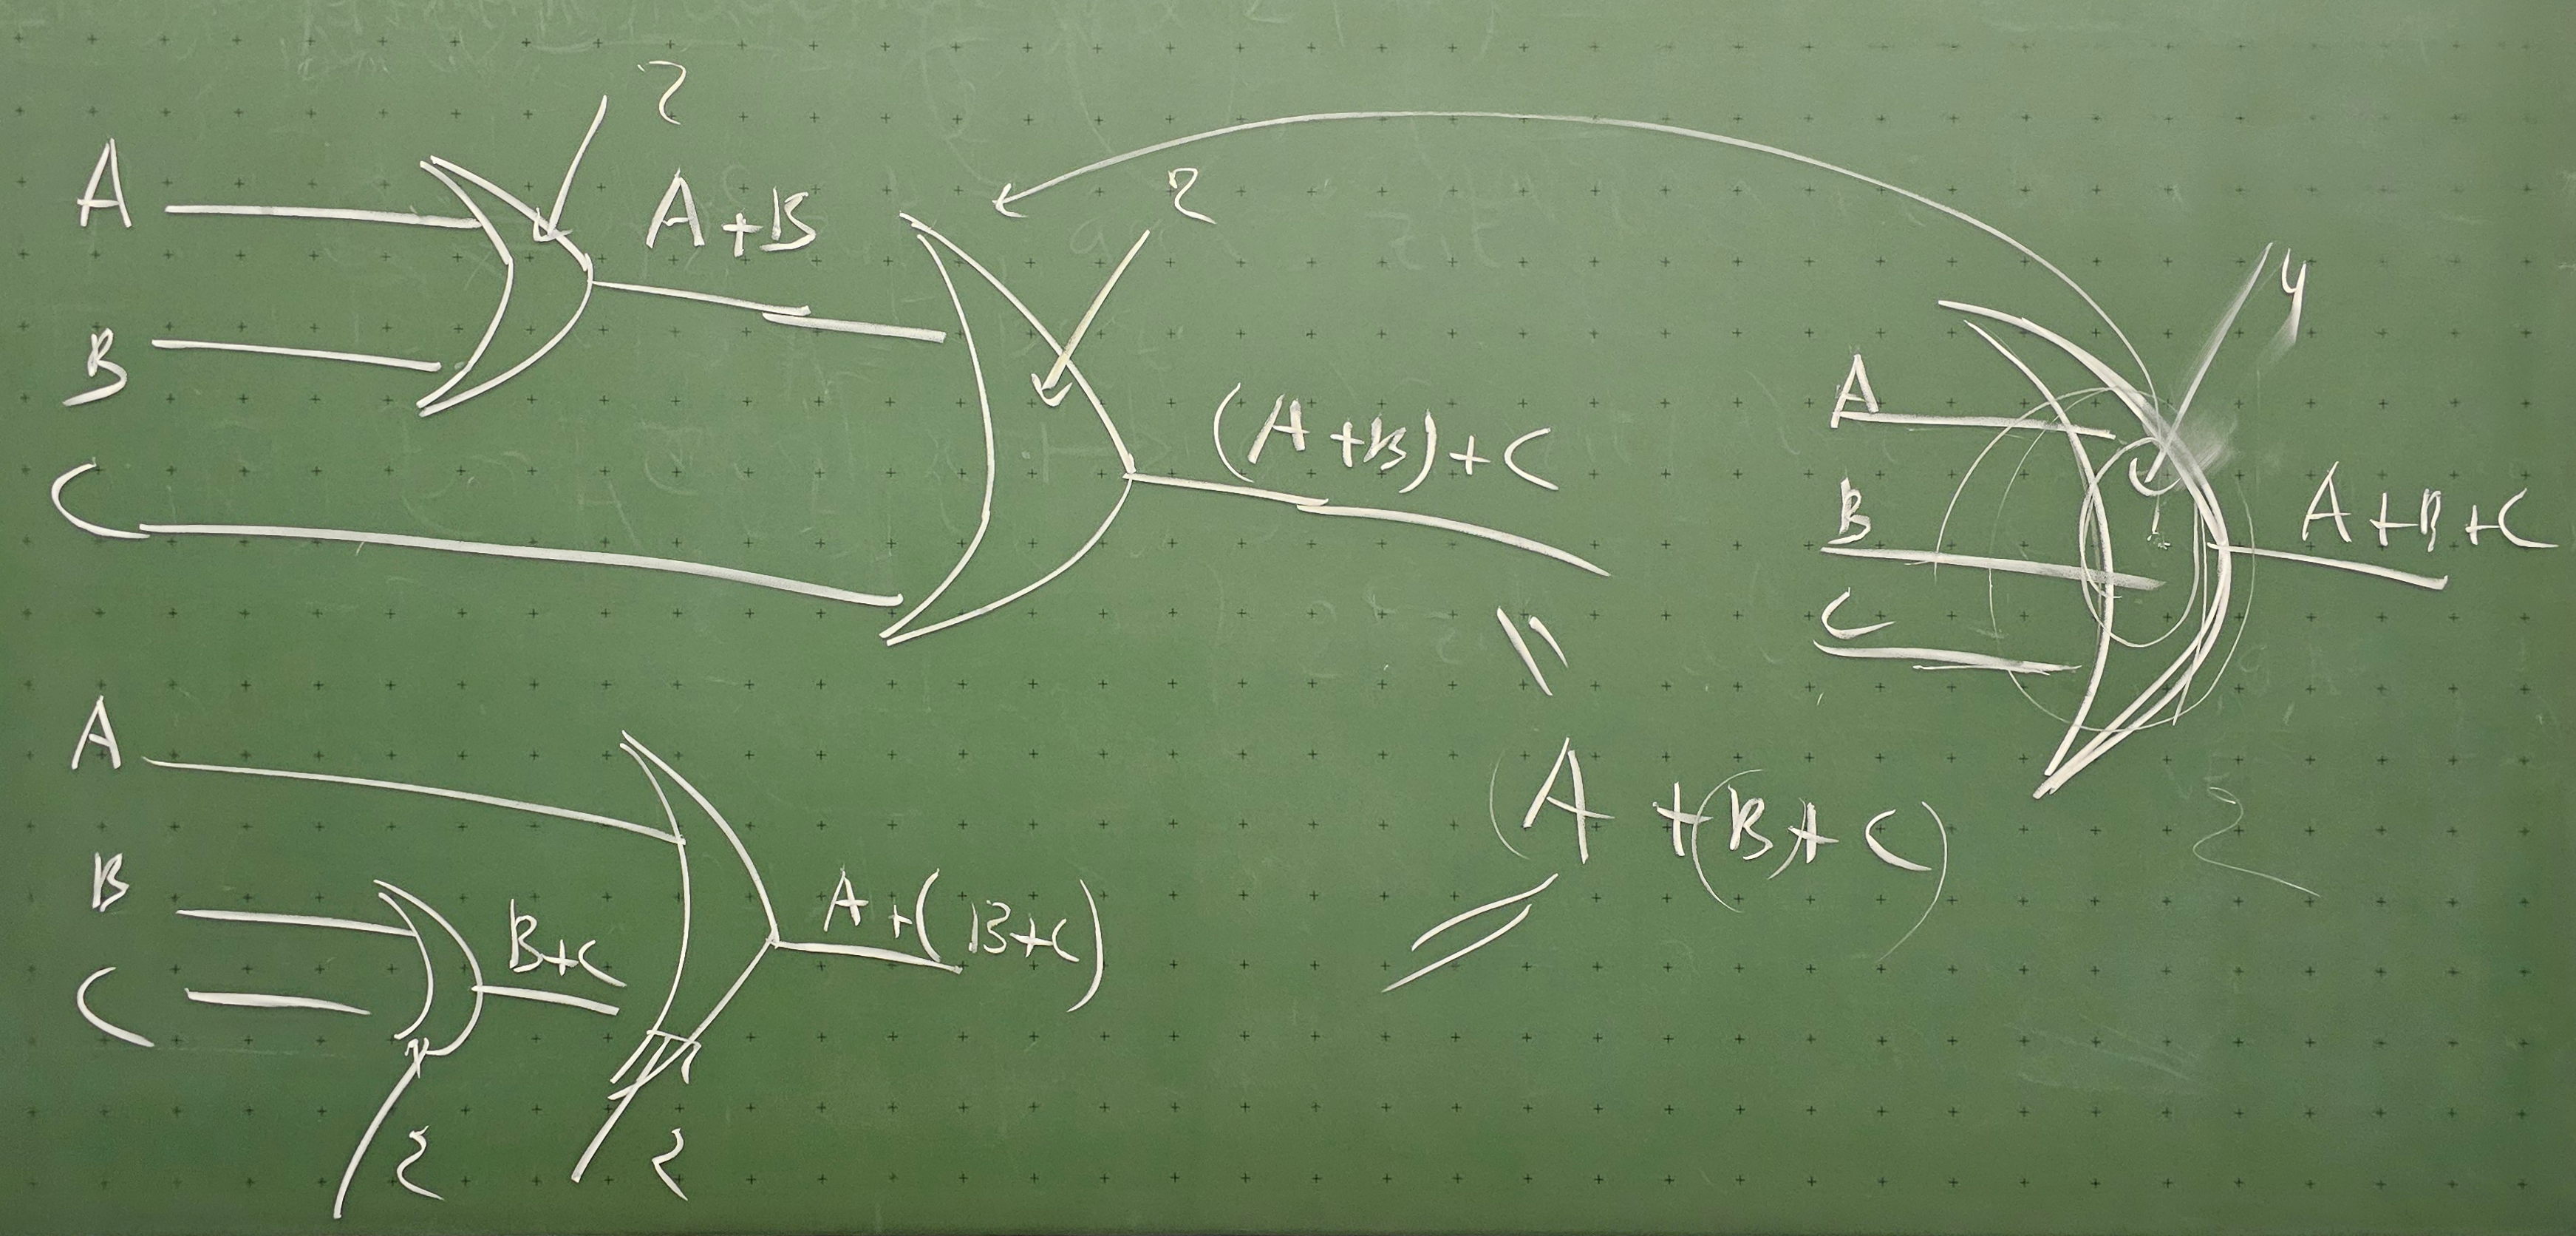 2
A
A+B
2
B
4
A
(A+B)+C
C
B
A+B+C
C
A
(A+(B)+C)
B
A+(B+C)
B+C
C
2
2